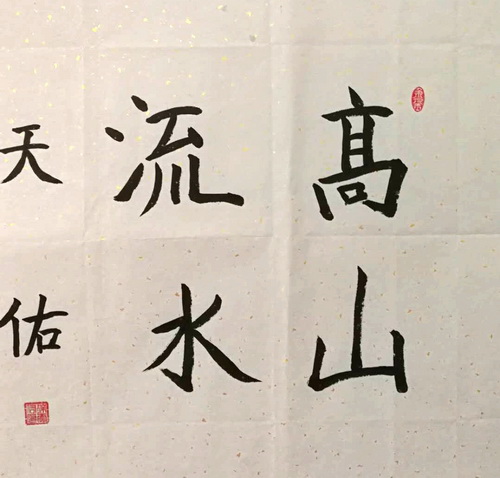 髙山
流水
天佑